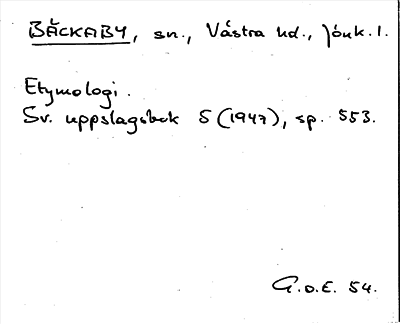 BÄCKABY, sn., Västra hd., Jönk. l.
Etymologi.
Sv. uppslagsbok 5 (1947), sp. 553.
G.o.E. 54.